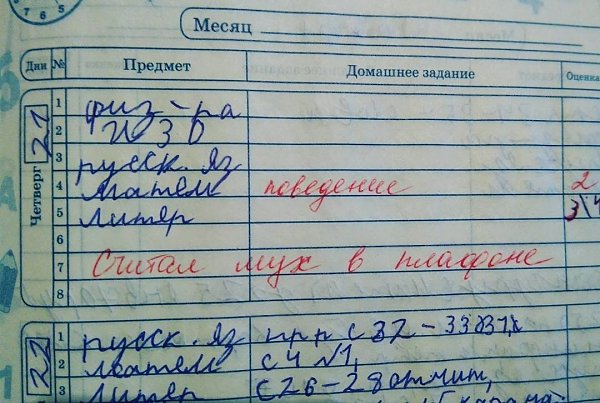 7 6 5
Месяц
Дни № Предмет Домашнее задание Оценка
Четверг 21
1 физ-ра
2 ИЗО
3 русск. яз
4 матем поведение 2
5 литер 3\4
6
7 Считал мух в плафоне
8
22
1 русск. яз прр с 32-33
2 матем с 4 №1,
3 литер с 26-28 отчит,